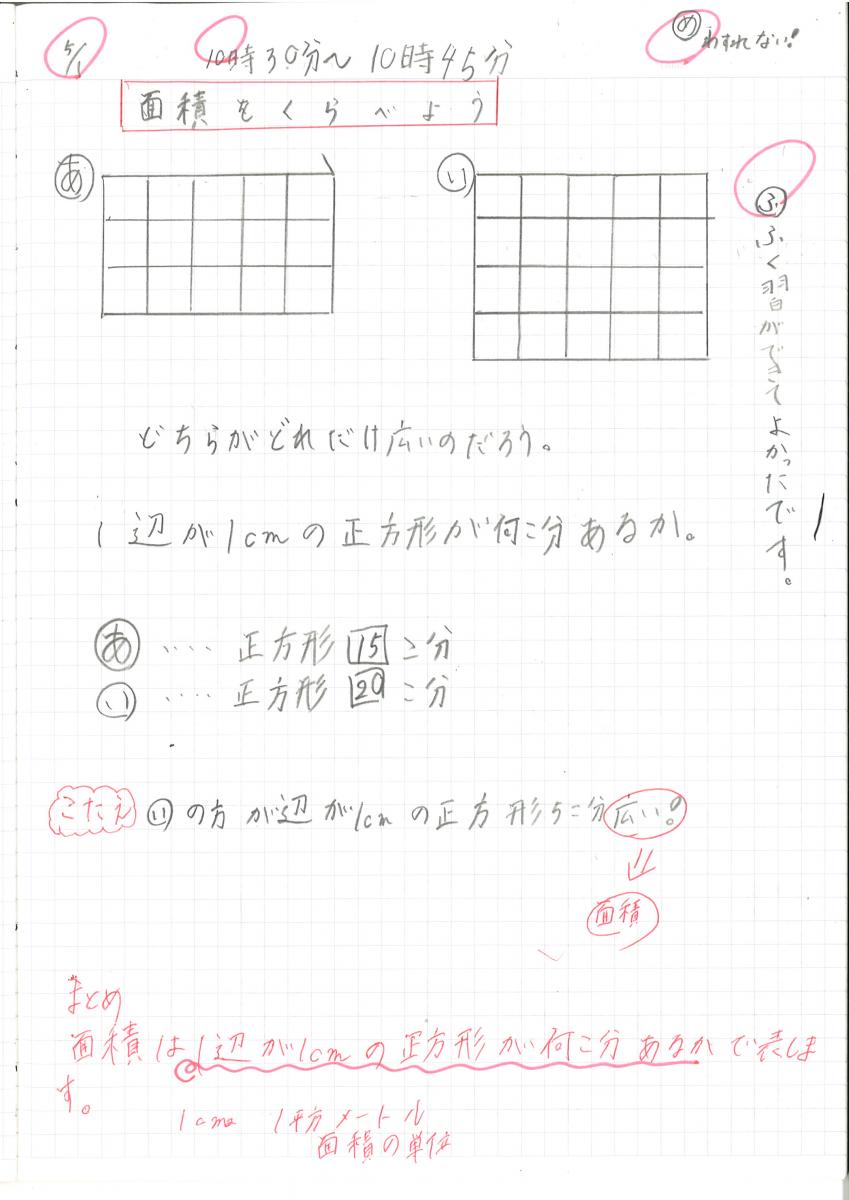 5/1
10時30分〜10時45分
め わすれない!
面積をくらべよう
あ
い
ふ
ふく習ができてよかったです。
どちらがどれだけ広いのだろう。
1辺が1cmの正方形が何こ分あるか。
あ …. 正方形 15 こ分
い …. 正方形 20 こ分
こたえ いの方が辺が1cmの正方形5こ分広い!
面積
まとめ
面積は1辺が1cmの正方形が何こ分あるかで表しま
す。
1cm2 1平方メートル
面積の単位